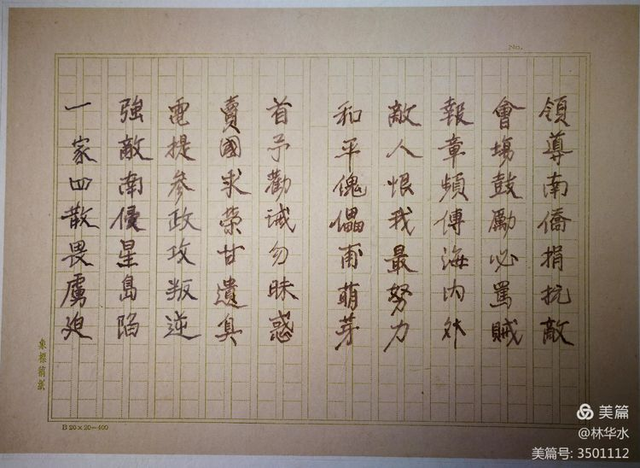 領導南僑捐抗敵
會場鼓勵必罵賊
報章頻傳海內外
敵人恨我最努力
和平傀儡甫萌芽
首予勸诫勿昧惑
賣國求榮甘遺臭
電提參政攻叛逆
強敵南侵星島陷
一家四散畏虜迫
B 20×20=400
美篇
@林华水
美篇号: 3501112